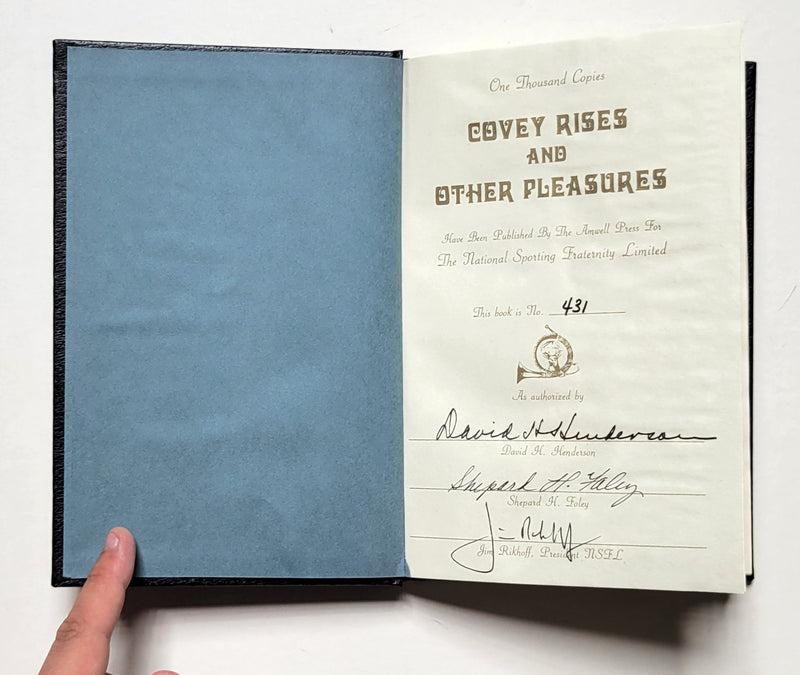 One Thousand Copies
COVEY RISES
AND
OTHER PLEASURES
Have Been Published By The Amwell Press For
The National Sporting Fraternity Limited
This book is No. 431
As authorized by
David H Henderson
David H. Henderson
Shepard H. Foley
Shepard H. Foley
Jim Rikhoff
Jim Rikhoff, President NSFL